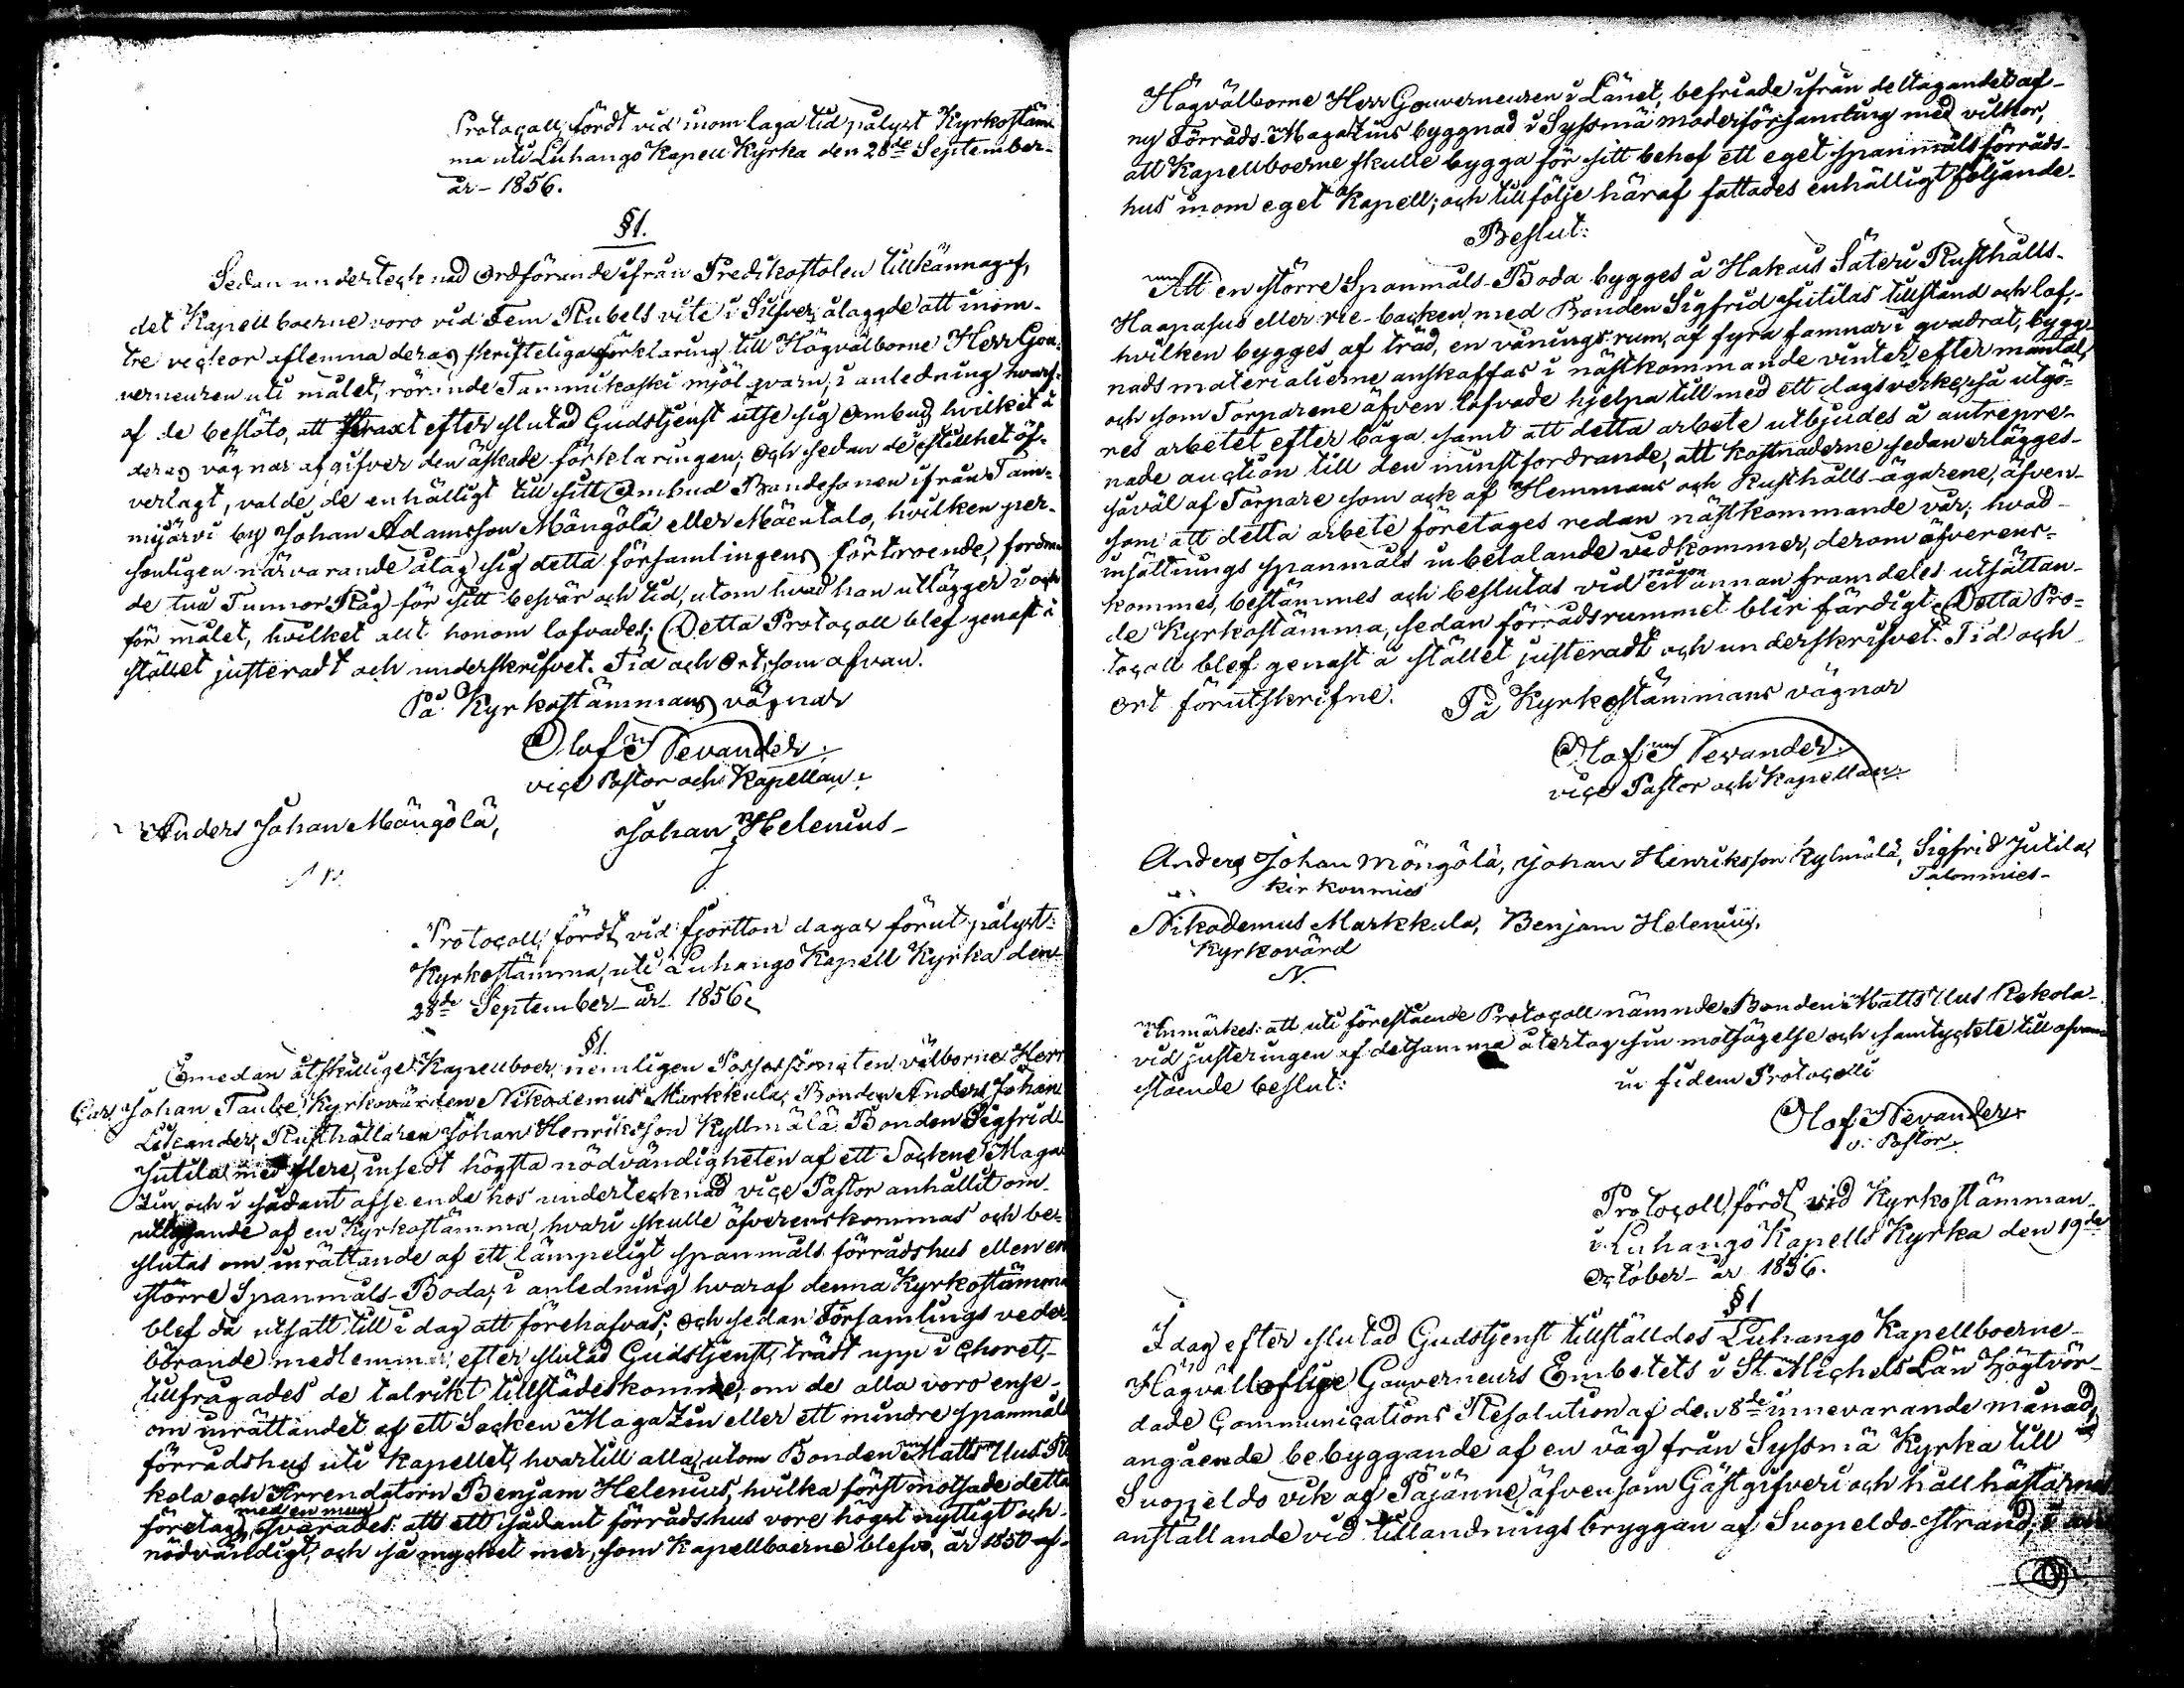 Protocoll, fördt vid inom laga tid pålyst Kyrkostäm-
ma uti Luhango Kapell Kyrka den 28de September
år 1856.
§1.
Sedan undertecknad Ordförande ifrån Predikostolen tillkännagaf,
det Kapellboerne voro vid Fem Rubels vite i Silfver ålaggde att inom
tre veckor aflemna deras skrifteliga förklaring till Högvälborne Herr Gou-
verneuren uti målet, rörande Tammikoski mjölqvarn, i anledning hvar-
af de beslöto, att straxt efter slutad Gudstjenst utse sig ombud, hvilket å
deras vägnar afgifver den äskade förklaringen; Och sedan de i stillhet öf-
verlagt, valde de enhälligt till sitt Ombud Bondesonen ifrån Tam-
mijärvi by Johan Adamsson Mängölä eller Mäentalo, hvilken per-
sonligen närvarande åtag sig detta församlingens förtroende, fordran-
de två Tunnor Råg för sitt besvär och tid, utom hvad han utlägger i och
för målet, hvilket allt honom lofvades; Detta Protocoll blef genast å
stället justeradt och underskrifvet. Tid och Ort, som ofvan.
På Kyrkostämmans vägnar
Olof Nevander,
vice Pastor och Kapellan.
Anders Johan Mängölä,
Johan Helenius
Protocoll, fördt vid fjortton dagar förut pålyst
Kyrkostämma, uti Luhango Kapell Kyrka den
28de September år 1856.
§1.
Emedan åtskillige Kapellboer, nemligen Possessionaten välborne Herr
Carl Johan Taube, Kyrkovärden Nikodemus Markkula, Bonden Anders Johan
Lileander, Rusthållaren Johan Henriksson Kyllmälä, Bonden Sigfrid
Jutila med flere, insedt högsta nödvändigheten af ett Sockne Maga-
zin, och i sådant afseende hos undertecknad vice Pastor anhållit om
utlysande af en Kyrkostämma, hvari skulle öfverenskommas och be-
slutas om inrättande af ett lämpeligt spanmåls förrådshus eller en
större Spanmåls-Boda; i anledning hvaraf denna Kyrkostämma
blef då utsatt till i dag att förehafvas; Och sedan Församlings veder-
börande medlemmar, efter slutad Gudstjenst, trädt upp i Choret,
tillfrågades de talrikt tillstädeskomne, om de alla voro ense
om inrättandet af ett Socken Magazin eller ett mindre spanmåls
förrådshus uti Kapellet, hvartill alla, utom Bonden Matts Uus Re-
kola och Arrendatorn Benjam Helenius, hvilka först motsade detta
med en mun
företag, svarades: att ett sådant förrådshus vore högst nyttigt och
nödvändigt, och så mycket mer, som Kapellboerne blefvo, år 1850 af
Högvälborne Herr Gouverneuren i Länet, befriade ifrån deltagandet af
ny Förråds-Magazins byggnad i Syssmä moderförsamling med vilkor,
att Kapellboerne skulle bygga för sitt behof ett eget spanmåls förråds-
hus inom eget Kapell; och till följe häraf fattades enhälligt följande
Beslut:
Att en större Spanmåls-Boda bygges å Hakais Säteri Rusthålls
Haapasus eller rie-backen, med Bonden Sigfrid Jutilas tillstånd och lof,
hvilken bygges af träd, en vånings rum, af fyra famnar i qvadrat, bygg-
nads materialierne anskaffas i nästkommande vinter, efter mantal,
och som Torparene äfven lofvade hjelpa till med ett dagsverke, så utgö-
res arbetet efter båga, samt att detta arbete utbjudes å autrepre-
nade auction till den minstfordrande, att kostnaderne sedan erlägges
såväl af Torpare som ock af Hemmans och Rusthålls-ägarene, äfven-
som att detta arbete företages redan nästkommande vår; hvad
insättnings spanmåls inbetalande vidkommer, derom öfverens-
kommes, bestämmes och beslutas vid någon annan framdeles utsättan-
de Kyrkostämma, sedan förrådsrummet blir färdigt. Detta Pro-
tocoll blef genast å stället justeradt och underskrifvet. Tid och
Ort förutskrifne.
På Kyrkostämmans vägnar
Olof Nevander.
vice Pastor och Kapellan.
Anders Johan Möngölä, Johan Henriksson Kylmälä, Sigfrid Jutila,
kirkonmies
Talonmies
Nikodemus Markkula, Benjam Helenius.
Kyrkovärd
N.
Anmärkes: att uti förestående Protocoll nämnde Bonden Matts Uus Rekola
vid justeringen af detsamma återtog sin motsägelse och samtyckte till ofvan-
stående beslut:
in fidem Protocolli
Olof Nevander
v. Pastor.
Protocoll, fördt vid Kyrkostämman
i Luhango Kapells Kyrka den 19de
October år 1856.
§1
I dag efter slutad Gudstjenst tillställdes Luhango Kapellboerne
Högvälloflige Gouverneurs Embetets i St. Michels Län Högtvör-
dade Communications Resolution af den 8de innevarande månad,
angående bebyggande af en väg från Syssmä Kyrka till
Suopeldo vik af Päjänne, äfvensom Gästgifveri och hållhästarnes
anställande vid tillandningsbryggan af Suopeldo-strand,